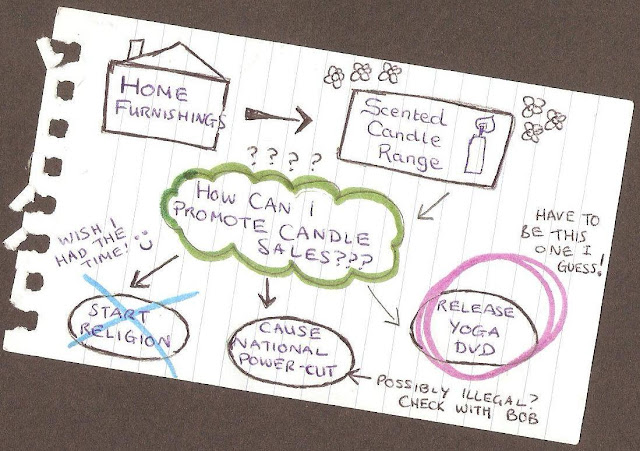 HOME
FURNISHINGS
Scented
Candle
Range
? ? ? ?
HOW CAN I
PROMOTE CANDLE
SALES???
WISH I
HAD THE
TIME!
HAVE TO
BE THIS
ONE I
GUESS!
START
RELIGION
CAUSE
NATIONAL
POWER-CUT
RELEASE
YOGA
DVD
POSSIBLY ILLEGAL?
CHECK WITH BOB